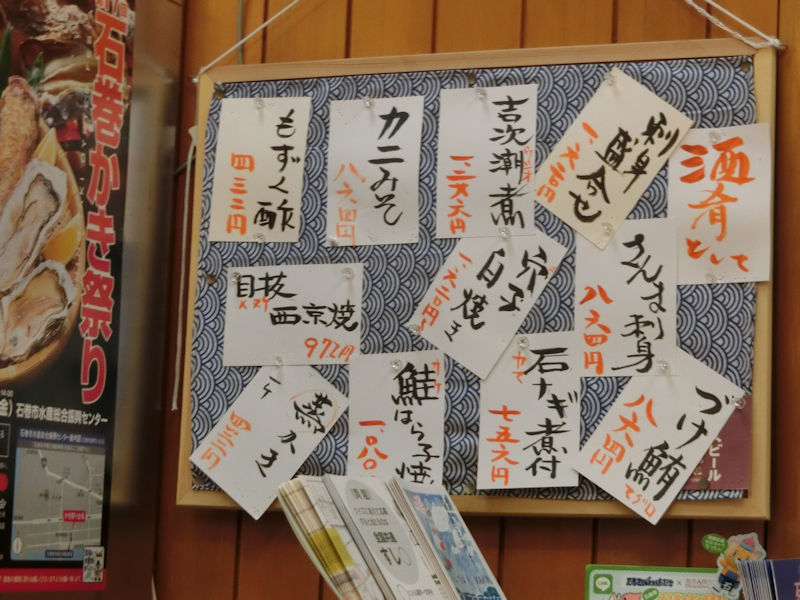 石巻かき祭り
石巻市水産総合振興センター
酒肴として
刺身
盛合せ
吉次潮煮
ウシオ
一、二九六円
カニみそ
八六四円
もずく酢
四三二円
さんま刺身
八六四円
穴子
白焼き
目抜
メヌケ
西京焼
972円
づけ鮪
マグロ
八六四円
石ナギ煮付
七五六円
鮭はら子焼
サケ
一、〇八〇
蒸かき
一ケ
四三二円
ビール